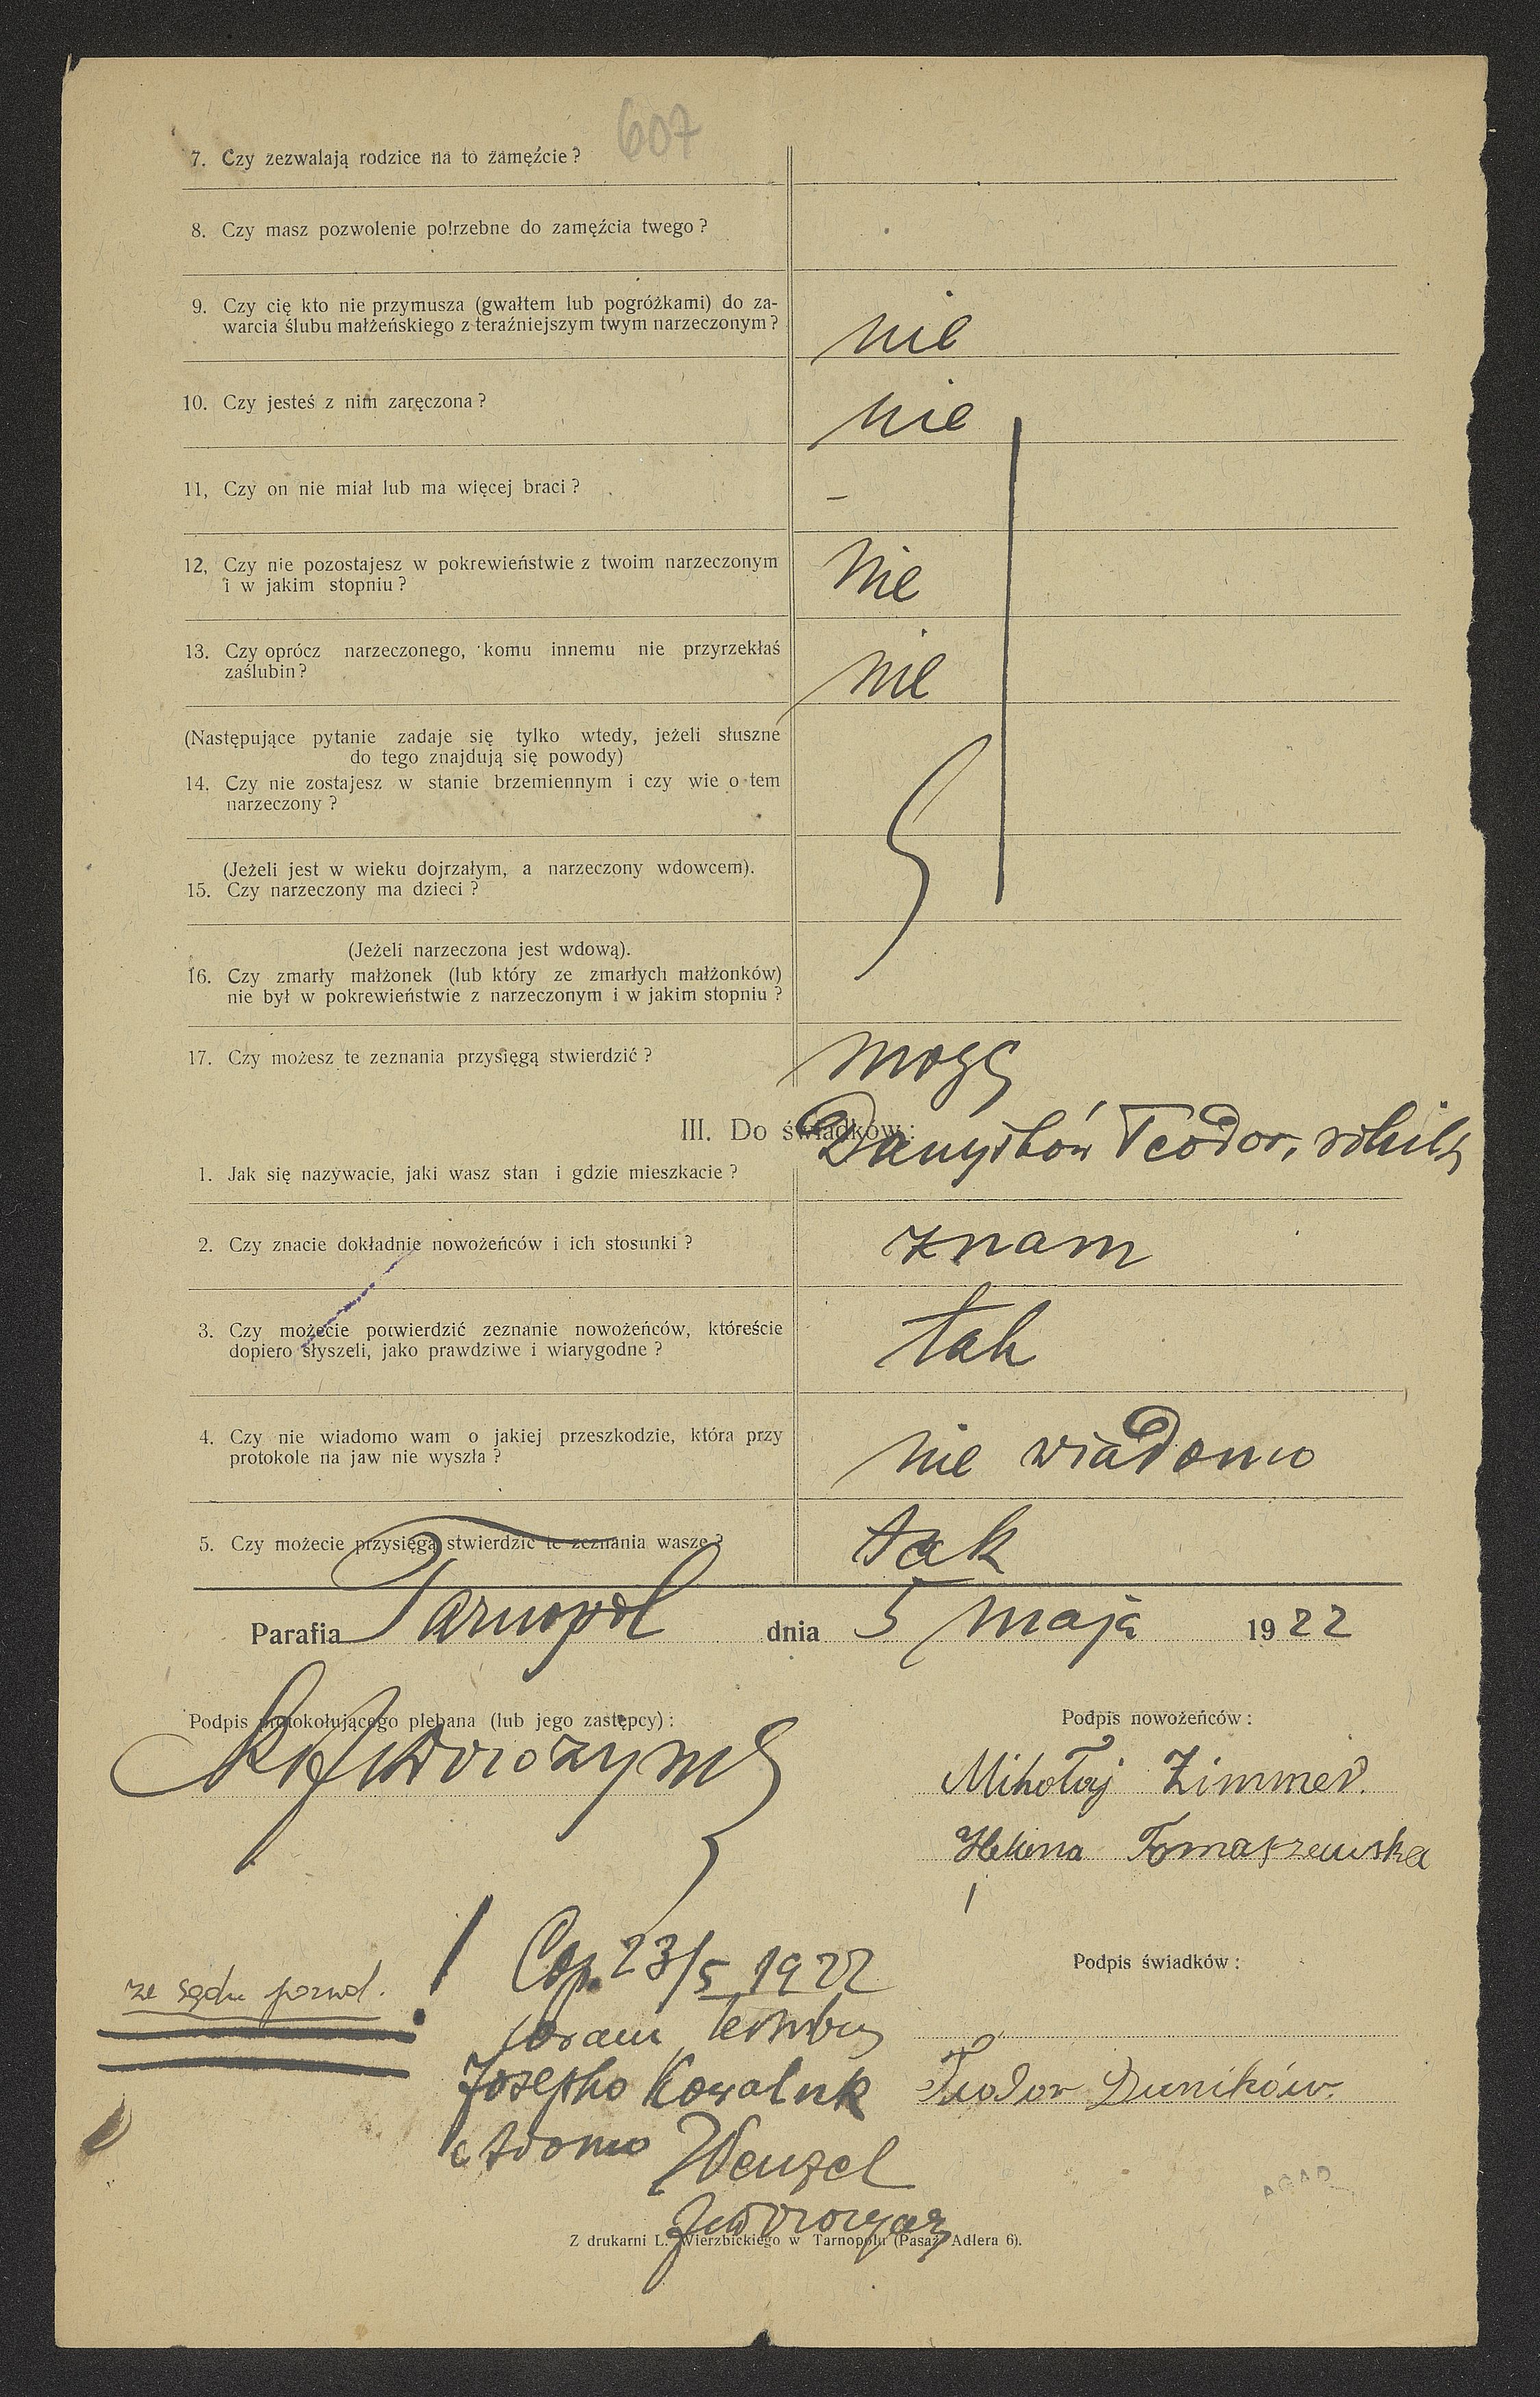 607
7. Czy zezwalają rodzice na to zamęźcie?
8. Czy masz pozwolenie potrzebne do zamęźcia twego?
9. Czy cię kto nie przymusza (gwałtem lub pogróżkami) do za-
warcia ślubu małżeńskiego z teraźniejszym twym narzeczonym?
nie
10. Czy jesteś z nim zaręczona?
nie
11, Czy on nie miał lub ma więcej braci?
–
12, Czy nie pozostajesz w pokrewieństwie z twoim narzeczonym
i w jakim stopniu?
Nie
13. Czy oprócz narzeczonego, komu innemu nie przyrzekłaś
zaślubin?
nie
(Następujące pytanie zadaje się tylko wtedy, jeżeli słuszne
do tego znajdują się powody)
14. Czy nie zostajesz w stanie brzemiennym i czy wie o tem
narzeczony?
(Jeżeli jest w wieku dojrzałym, a narzeczony wdowcem).
15. Czy narzeczony ma dzieci?
(Jeżeli narzeczona jest wdową).
16. Czy zmarły małżonek (lub który ze zmarłych małżonków)
nie był w pokrewieństwie z narzeczonym i w jakim stopniu?
17. Czy możesz te zeznania przysięgą stwierdzić?
mogę
III. Do świadków:
Teodor,
1. Jak się nazywacie, jaki wasz stan i gdzie mieszkacie?
2. Czy znacie dokładnie nowożeńców i ich stosunki?
znam
3. Czy możecie potwierdzić zeznanie nowożeńców, któreście
dopiero słyszeli, jako prawdziwe i wiarygodne?
tak
4. Czy nie wiadomo wam o jakiej przeszkodzie, która przy
protokole na jaw nie wyszła?
nie wiadomo
5. Czy możecie przysięgą stwierdzić te zeznania wasze?
tak
Parafia Tarnopol dnia 5 maja 1922
Podpis protokołującego plebana (lub jego zastępcy):
Podpis nowożeńców:
Mikołaj Zimmer.
Helena Tomaszewska
Cop. 23/5 1922
Podpis świadków:
ze sądu pozwol.
coram testibus
Josepho Kowaluk
Teodor Duników.
et Adamo Wenzel
Z drukarni L. Wierzbickiego w Tarnopolu (Pasaż Adlera 6).
AGAD